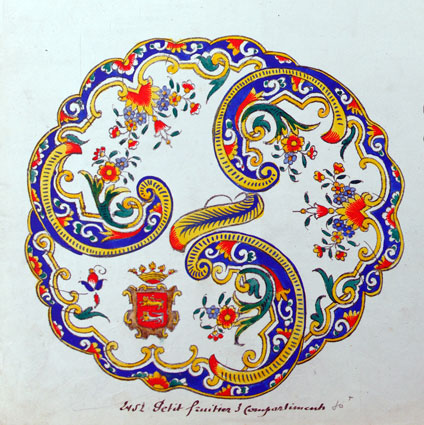 2452 Petit fruitier 3 Compartiments